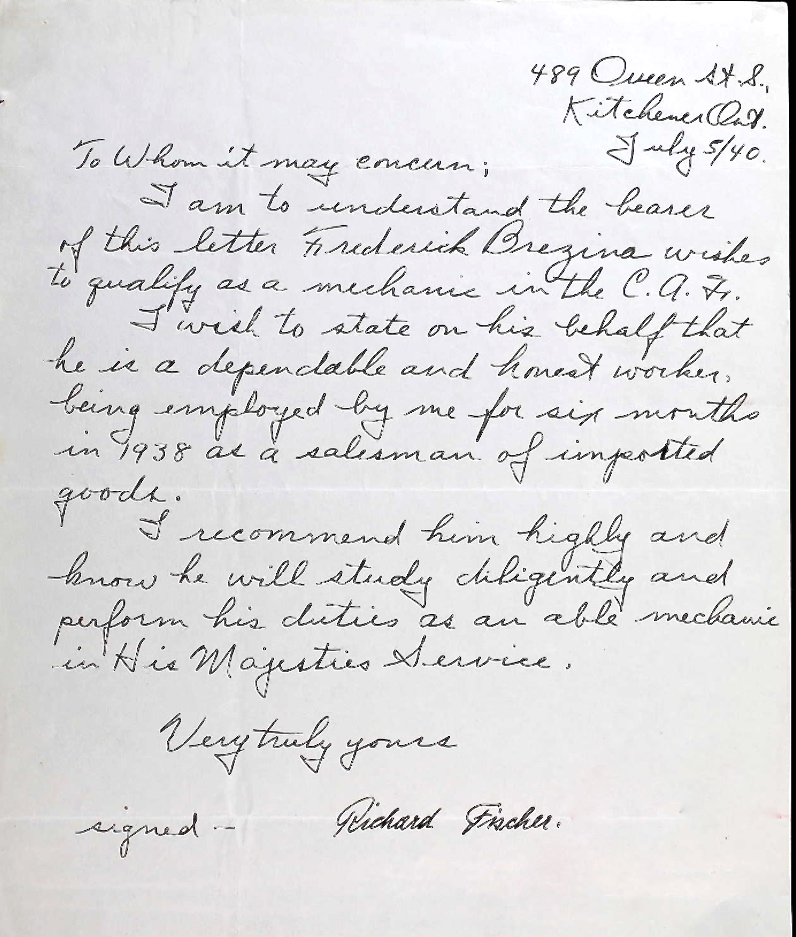 489 Queen St. S.,
Kitchener Ont.
July 5/40.
To Whom it may concern;
I am to understand the bearer
of this letter Frederick Brezina wishes
to qualify as a mechanic in the C. A. F.
I wish to state on his behalf that
he is a dependable and honest worker,
being employed by me for six months
in 1938 as a salesman of imported
goods.
I recommend him highly and
know he will study diligently and
perform his duties as an able mechanic
in His Majesties Service.
Very truly yours
signed -- Richard Fischer.